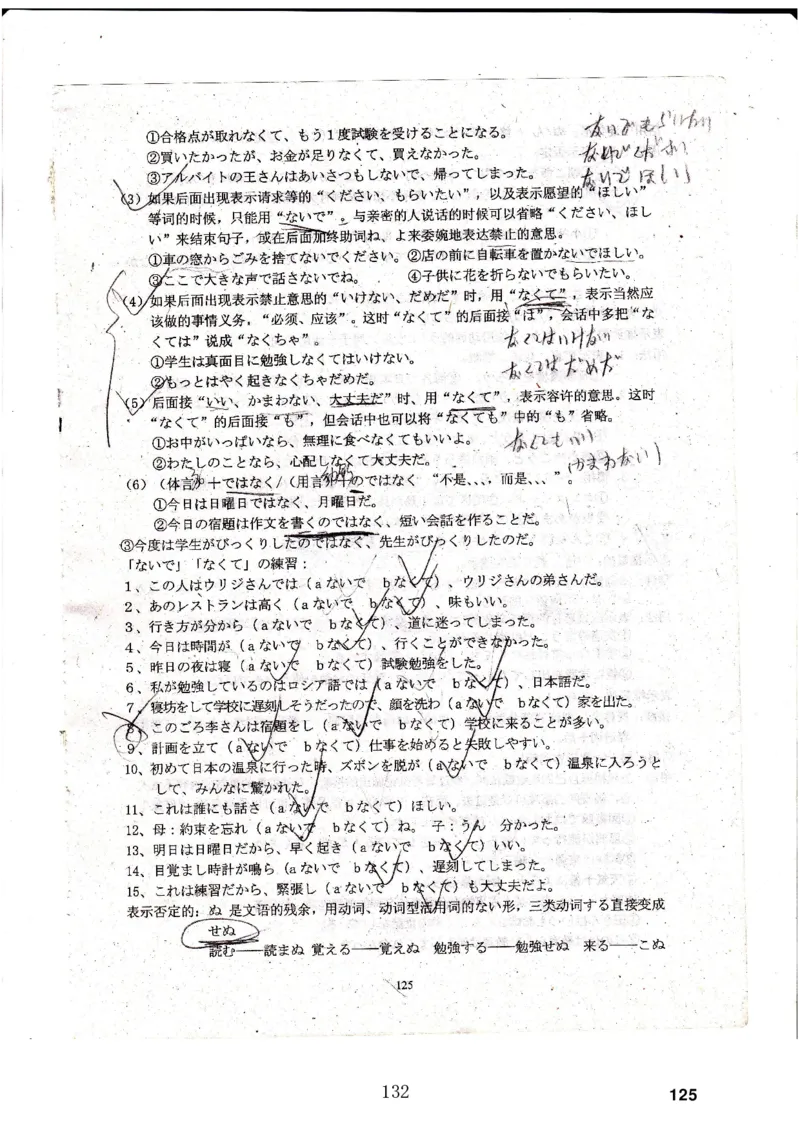 ①合格点が取れなくて、もう1度試験を受けることになる。
②買いたかったが、お金が足りなくて、買えなかった。
③アルバイトの王さんはあいさつもしないで、帰ってしまった。
ないでもらいたい
ないでください
ないでほしい
(3)如果后面出现表示请求等的“ください、もらいたい”，以及表示愿望的“ほしい”
等词的时候，只能用“ないで”。与亲密的人说话的时候可以省略“ください、ほし
い”来结束句子，或在后面加终助词ね、よ来委婉地表达禁止的意思。
①車の窓からごみを捨てないでください。②店の前に自転車を置かないでほしい。
③ここで大きな声で話さないでね。 ④子供に花を折らないでもらいたい。
(4)如果后面出现表示禁止意思的“いけない、だめだ”时，用“なくて”，表示当然应
该做的事情义务，“必须、应该”。这时“なくて”的后面接“は”，会话中多把“な
くては”说成“なくちゃ”。
なくてはいけない
なくてはだめだ
①学生は真面目に勉強しなくてはいけない。
②もっとはやく起きなくちゃだめだ。
(5)后面接“いい、かまわない、大丈夫だ”时、用“なくて”，表示容许的意思。这时
“なくて”的后面接“も”，但会话中也可以将“なくても”中的“も”省略。
①お中がいっぱいなら、無理に食べなくてもいいよ。
なくてもいい
②わたしのことなら、心配しなくて大丈夫だ。
(かまわない)
(6)（体言＋ではなく/（用言＋のではなく “不是、、、，而是、、、”。
①今日は日曜日ではなく、月曜日だ。
②今日の宿題は作文を書くのではなく、短い会話を作ることだ。
③今度は学生がびっくりしたのではなく、先生がびっくりしたのだ。
「ないで」「なくて」の練習：
1、この人はウリジさんでは（aないで bなくて）、ウリジさんの弟さんだ。
2、あのレストランは高く（aないで bなくて）、味もいい。
3、行き方が分から（aないで bなくて）、道に迷ってしまった。
4、今日は時間が（aないで bなくて）、行くことができなかった。
5、昨日の夜は寝（aないで bなくて）試験勉強をした。
6、私が勉強しているのはロシア語では（aないで bなくて）、日本語だ。
7、寝坊をして学校に遅刻しそうだったので、顔を洗わ（aないで bなくて）家を出た。
8、このごろ李さんは宿題をし（aないで bなくて）学校に来ることが多い。
9、計画を立て（aないで bなくて）仕事を始めると失敗しやすい。
10、初めて日本の温泉に行った時、ズボンを脱が（aないで bなくて）温泉に入ろうと
して、みんなに驚かれた。
11、これは誰にも話さ（aないで bなくて）ほしい。
12、母：約束を忘れ（aないで bなくて）ね。 子：うん 分かった。
13、明日は日曜日だから、早く起き（aないで bなくて）いい。
14、目覚まし時計が鳴ら（aないで bなくて）、遅刻してしまった。
15、これは練習だから、緊張し（aないで bなくて）も大丈夫だよ。
表示否定的：ぬ 是文语的残余，用动词、动词型活用词的ない形，三类动词する直接变成
せぬ
読む——読まぬ 覚える——覚えぬ 勉強する——勉強せぬ 来る——こぬ
125
132
125